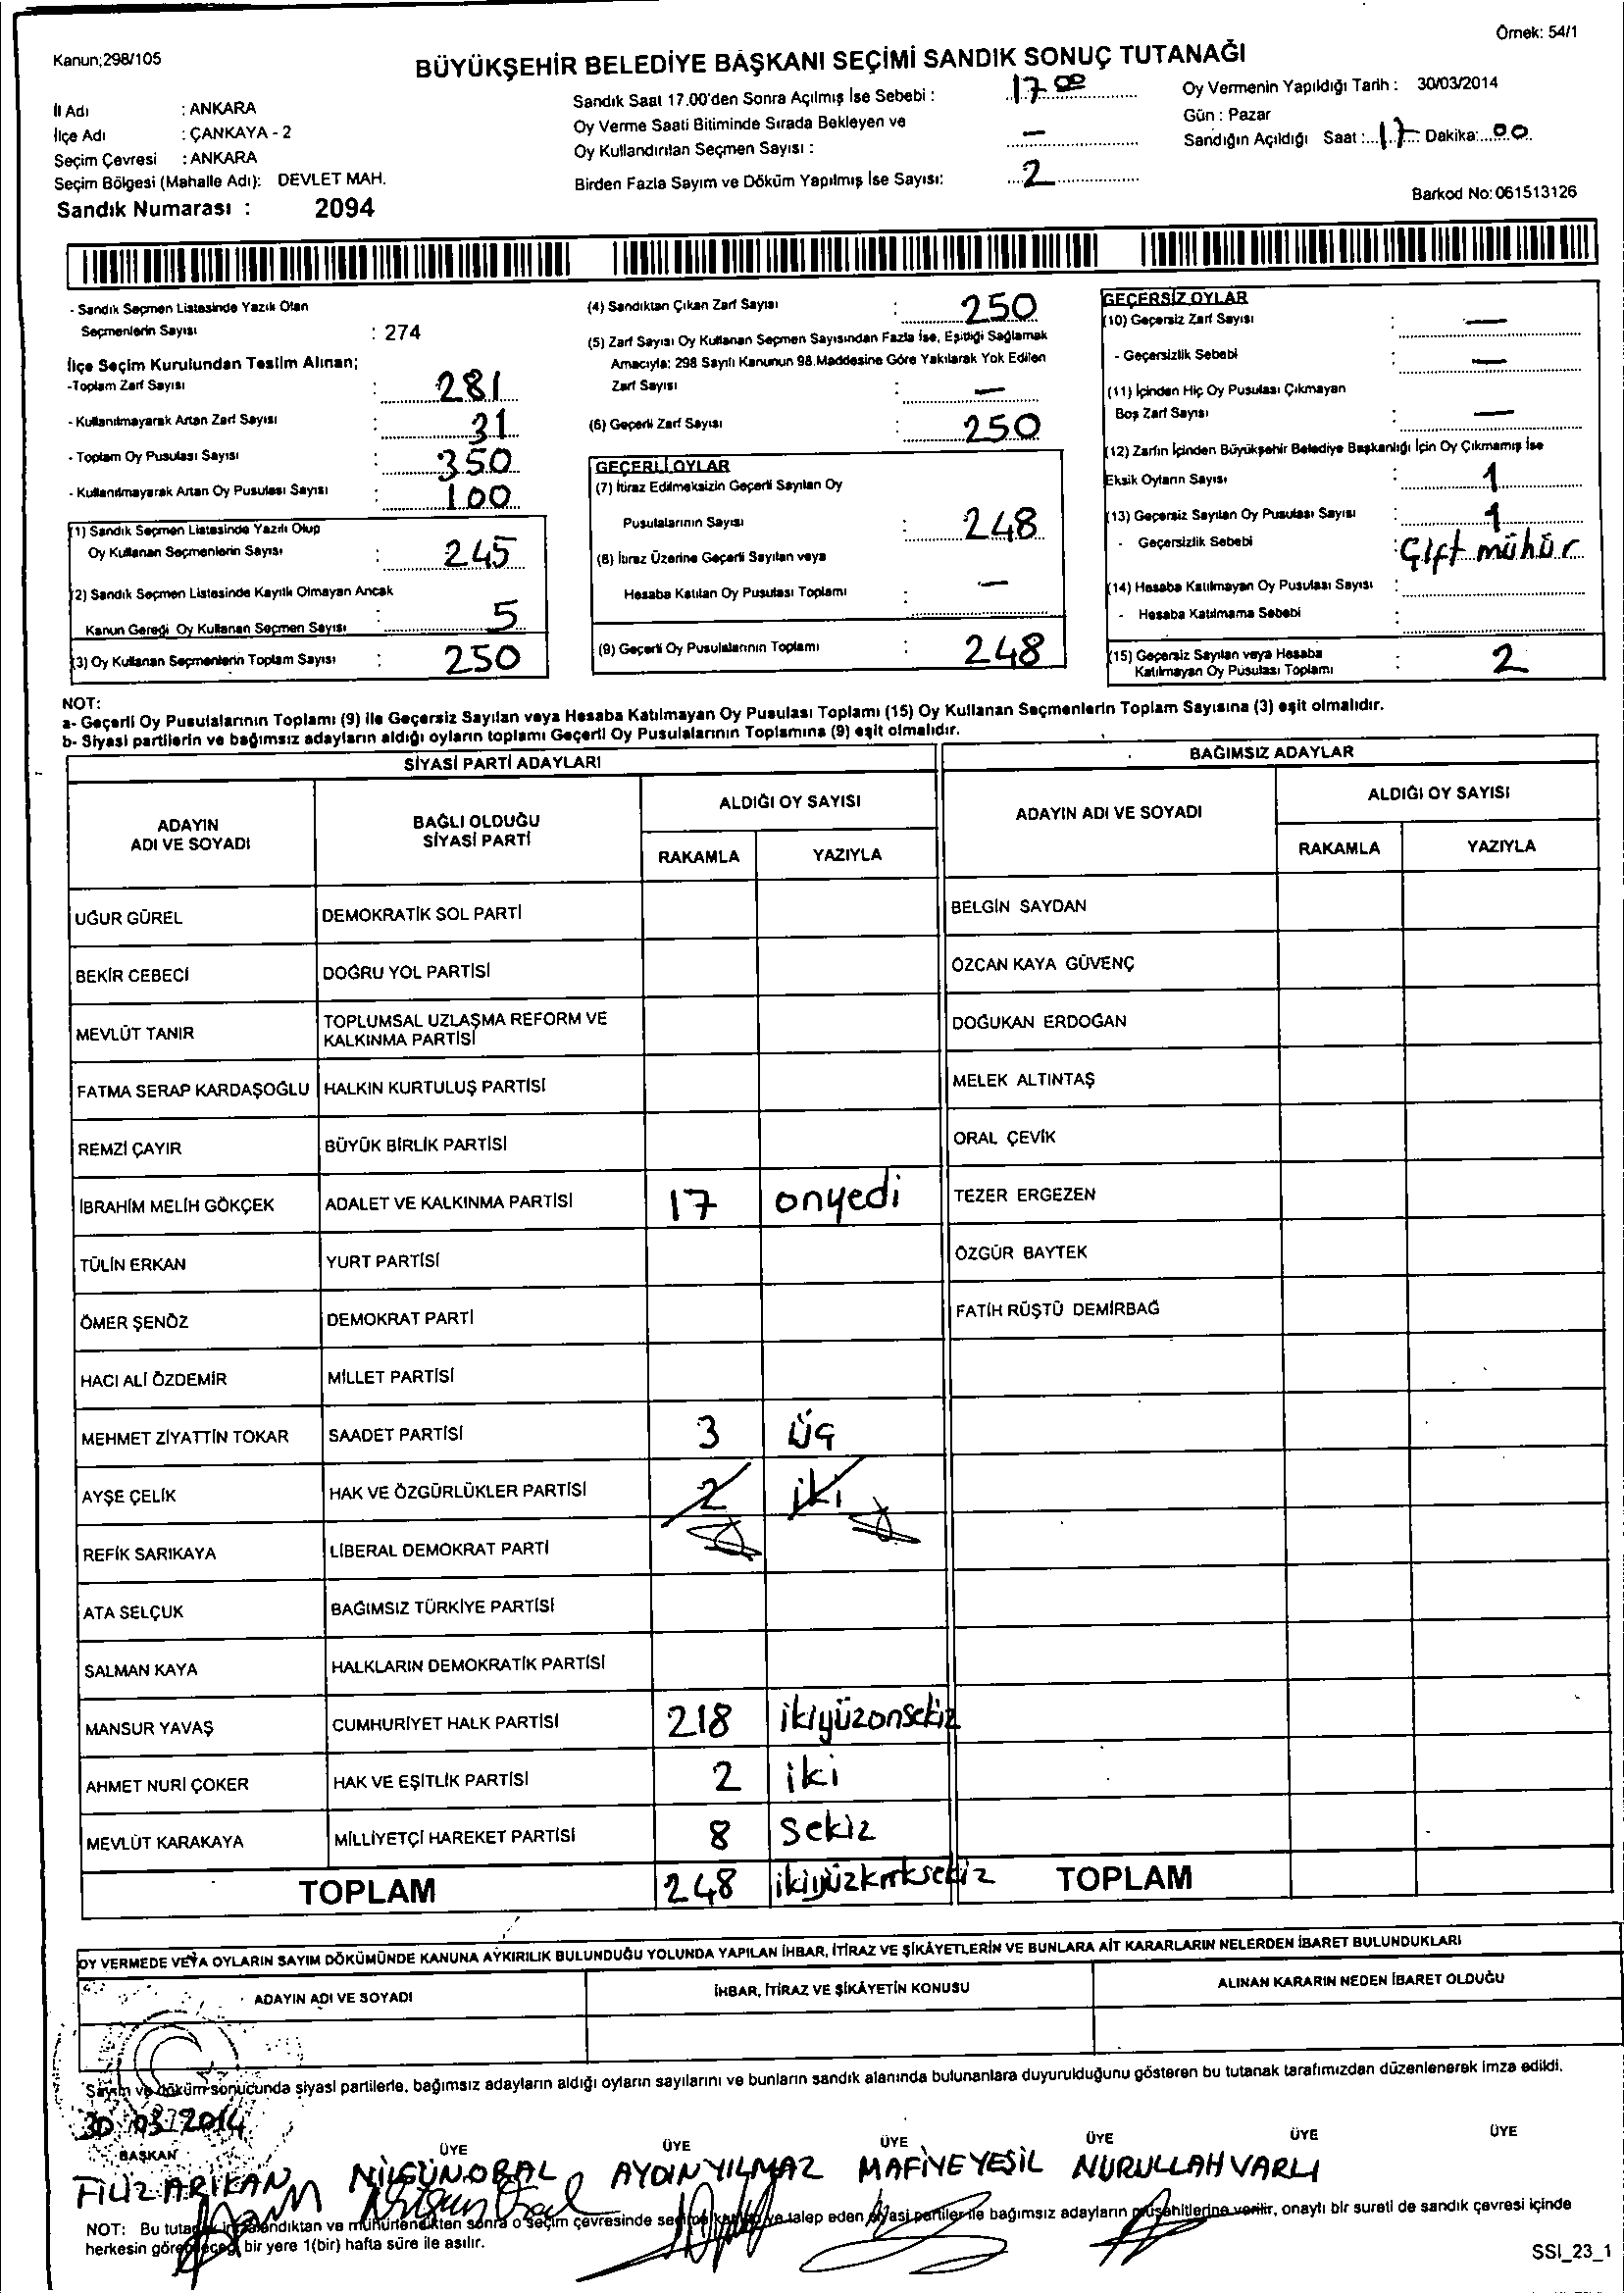 Örnek: 54/1
Kanun;298/105
BÜYÜKŞEHİR BELEDİYE BAŞKANI SEÇİMİ SANDIK SONUÇ TUTANAĞI
İl Adı : ANKARA
İlçe Adı : ÇANKAYA - 2
Seçim Çevresi : ANKARA
Seçim Bölgesi (Mahalle Adı): DEVLET MAH.
Sandık Numarası : 2094
Sandık Saat 17.00'den Sonra Açılmış İse Sebebi : 17 00
Oy Verme Saati Bitiminde Sırada Bekleyen ve
Oy Kullandırılan Seçmen Sayısı : —
Birden Fazla Sayım ve Döküm Yapılmış İse Sayısı: 2
Oy Vermenin Yapıldığı Tarih : 30/03/2014
Gün : Pazar
Sandığın Açıldığı Saat : 17 Dakika: 00
Barkod No: 061513126
- Sandık Seçmen Listesinde Yazılı Olan
Seçmenlerin Sayısı : 274
İlçe Seçim Kurulundan Teslim Alınan;
-Toplam Zarf Sayısı : 281
- Kullanılmayarak Artan Zarf Sayısı : 31
- Toplam Oy Pusulası Sayısı : 350
- Kullanılmayarak Artan Oy Pusulası Sayısı : 100
(1) Sandık Seçmen Listesinde Yazılı Olup
Oy Kullanan Seçmenlerin Sayısı : 245
(2) Sandık Seçmen Listesinde Kayıtlı Olmayan Ancak
Kanun Gereği Oy Kullanan Seçmen Sayısı : 5
(3) Oy Kullanan Seçmenlerin Toplam Sayısı : 250
(4) Sandıktan Çıkan Zarf Sayısı : 250
(5) Zarf Sayısı Oy Kullanan Seçmen Sayısından Fazla İse, Eşitliği Sağlamak
Amacıyla; 298 Sayılı Kanunun 98.Maddesine Göre Yakılarak Yok Edilen
Zarf Sayısı : —
(6) Geçerli Zarf Sayısı : 250
GEÇERLİ OYLAR
(7) İtiraz Edilmeksizin Geçerli Sayılan Oy
Pusulalarının Sayısı : 248
(8) İtiraz Üzerine Geçerli Sayılan veya
Hesaba Katılan Oy Pusulası Toplamı : —
(9) Geçerli Oy Pusulalarının Toplamı : 248
GEÇERSİZ OYLAR
(10) Geçersiz Zarf Sayısı : —
- Geçersizlik Sebebi : —
(11) İçinden Hiç Oy Pusulası Çıkmayan
Boş Zarf Sayısı : —
(12) Zarfın İçinden Büyükşehir Belediye Başkanlığı İçin Oy Çıkmamış İse
Eksik Oyların Sayısı : 1
(13) Geçersiz Sayılan Oy Pusulası Sayısı : 1
- Geçersizlik Sebebi : Çift mühür
(14) Hesaba Katılmayan Oy Pusulası Sayısı :
- Hesaba Katılmama Sebebi :
(15) Geçersiz Sayılan veya Hesaba
Katılmayan Oy Pusulası Toplamı : 2
NOT:
a- Geçerli Oy Pusulalarının Toplamı (9) ile Geçersiz Sayılan veya Hesaba Katılmayan Oy Pusulası Toplamı (15) Oy Kullanan Seçmenlerin Toplam Sayısına (3) eşit olmalıdır.
b- Siyasi partilerin ve bağımsız adayların aldığı oyların toplamı Geçerli Oy Pusulalarının Toplamına (9) eşit olmalıdır.
SİYASİ PARTİ ADAYLARI
BAĞIMSIZ ADAYLAR
ADAYIN ADI VE SOYADI
BAĞLI OLDUĞU SİYASİ PARTİ
ALDIĞI OY SAYISI
RAKAMLA YAZIYLA
ADAYIN ADI VE SOYADI
ALDIĞI OY SAYISI
RAKAMLA YAZIYLA
UĞUR GÜREL DEMOKRATİK SOL PARTİ BELGİN SAYDAN
BEKİR CEBECİ DOĞRU YOL PARTİSİ ÖZCAN KAYA GÜVENÇ
MEVLÜT TANIR TOPLUMSAL UZLAŞMA REFORM VE KALKINMA PARTİSİ DOĞUKAN ERDOĞAN
FATMA SERAP KARDAŞOĞLU HALKIN KURTULUŞ PARTİSİ MELEK ALTINTAŞ
REMZİ ÇAYIR BÜYÜK BİRLİK PARTİSİ ORAL ÇEVİK
İBRAHİM MELİH GÖKÇEK ADALET VE KALKINMA PARTİSİ 17 onyedi TEZER ERGEZEN
TÜLİN ERKAN YURT PARTİSİ ÖZGÜR BAYTEK
ÖMER ŞENÖZ DEMOKRAT PARTİ FATİH RÜŞTÜ DEMİRBAĞ
HACI ALİ ÖZDEMİR MİLLET PARTİSİ
MEHMET ZİYATTİN TOKAR SAADET PARTİSİ 3 üç
AYŞE ÇELİK HAK VE ÖZGÜRLÜKLER PARTİSİ 2 iki
REFİK SARIKAYA LİBERAL DEMOKRAT PARTİ
ATA SELÇUK BAĞIMSIZ TÜRKİYE PARTİSİ
SALMAN KAYA HALKLARIN DEMOKRATİK PARTİSİ
MANSUR YAVAŞ CUMHURİYET HALK PARTİSİ 218 ikiyüzonsekiz
AHMET NURİ ÇOKER HAK VE EŞİTLİK PARTİSİ 2 iki
MEVLÜT KARAKAYA MİLLİYETÇİ HAREKET PARTİSİ 8 sekiz
TOPLAM 248 ikiyüzkırksekiz TOPLAM
OY VERMEDE VEYA OYLARIN SAYIM DÖKÜMÜNDE KANUNA AYKIRILIK BULUNDUĞU YOLUNDA YAPILAN İHBAR, İTİRAZ VE ŞİKÂYETLERİN VE BUNLARA AİT KARARLARIN NELERDEN İBARET BULUNDUKLARI
ADAYIN ADI VE SOYADI İHBAR, İTİRAZ VE ŞİKÂYETİN KONUSU ALINAN KARARIN NEDEN İBARET OLDUĞU
Sayım ve döküm sonucunda siyasi partilerle, bağımsız adayların aldığı oyların sayılarını ve bunların sandık alanında bulunanlara duyurulduğunu gösteren bu tutanak tarafımızdan düzenlenerek imza edildi.
30 03 2014
BAŞKAN ÜYE ÜYE ÜYE ÜYE ÜYE ÜYE
FİLİZ ARIKAN NİLGÜN ORAL AYDIN YILMAZ MAFİYE YEŞİL NURULLAH VARLI
NOT: Bu tutanak imzalandıktan ve mühürlendikten sonra o seçim çevresinde seçime katılan ve talep eden siyasi partiler ile bağımsız adayların müşahitlerine verilir, onaylı bir sureti de sandık çevresi içinde
herkesin görebileceği bir yere 1(bir) hafta süre ile asılır.
SSI_23_1